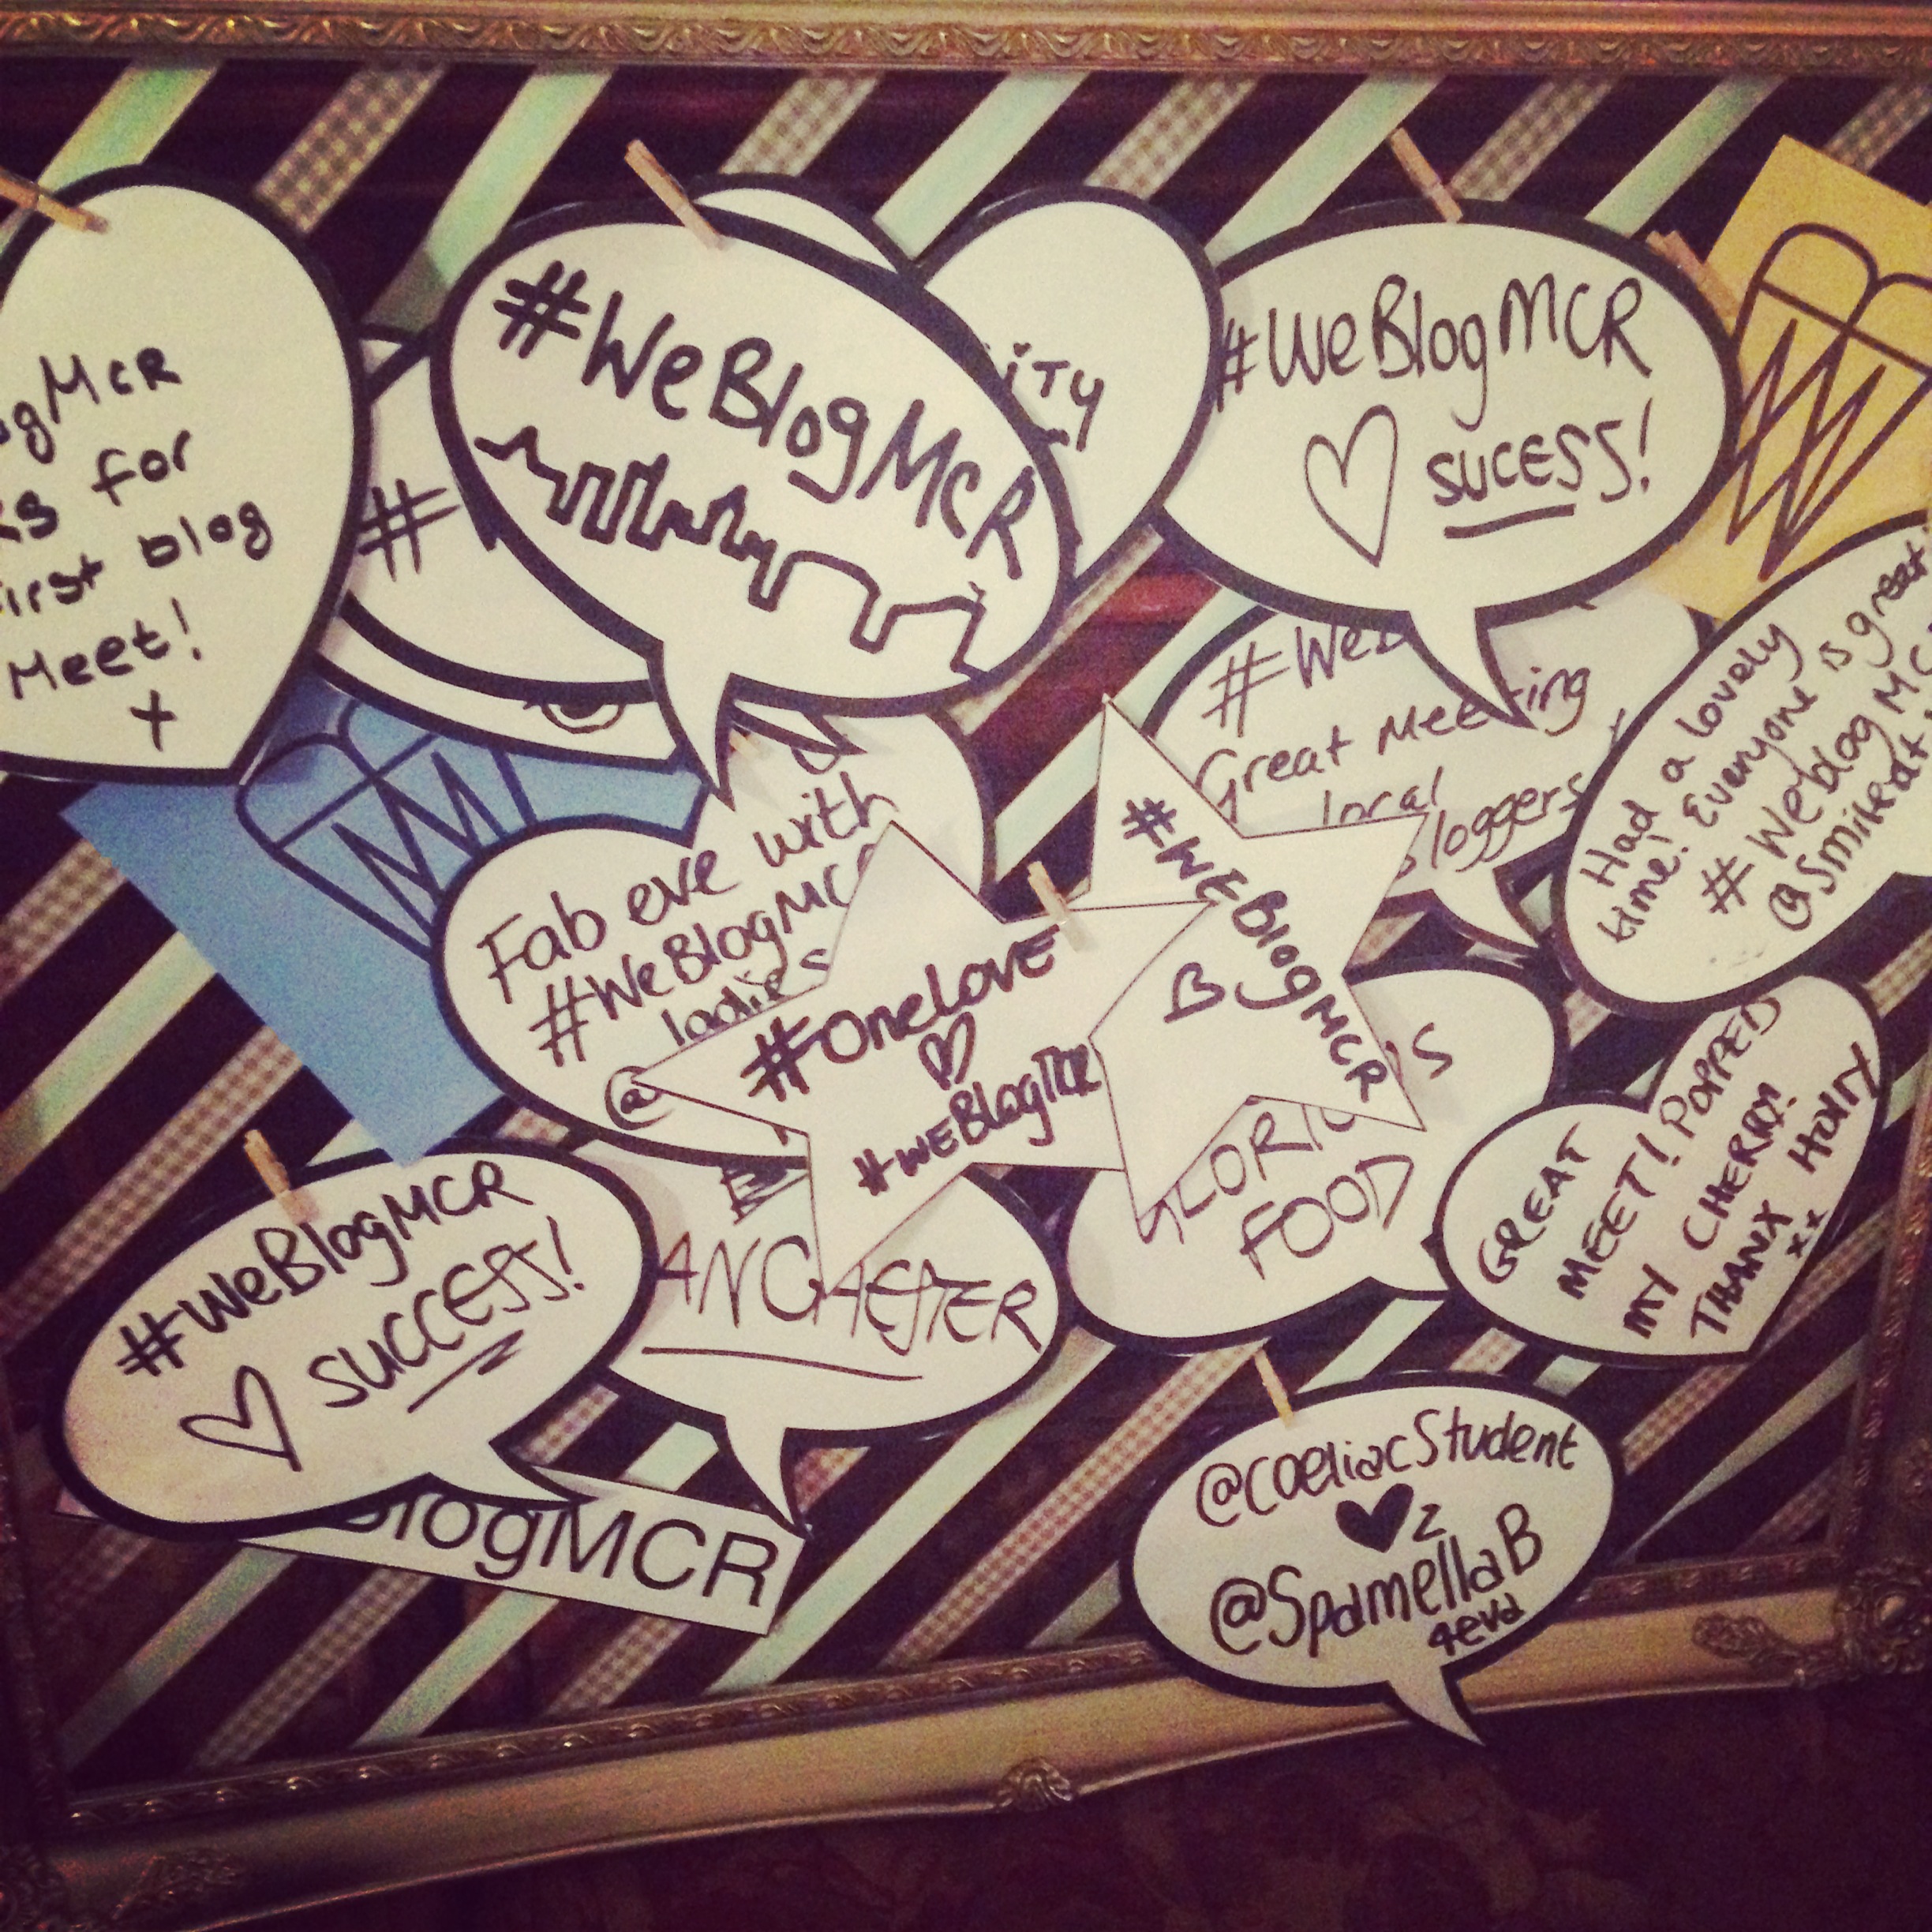 for
blog
Meet!
x
#
#WeBlogMCR
#WeBlogMCR
SUCESS!
Great Meeting
local
Had a lovely
time! Everyone is great
#WeblogMC
Fab eve with
#WeBlogMC
ladies
@
#OneLOVE
#WEBlogMCR
#WEBlogMCR
FOOD
GREAT
MEET! POPPED
MY CHERRY!
THANX HOLLY
xx
#WeBlogMCR
SUCCESS!
ANCHESTER
BlogMCR
@CoeliacStudent
z
@SpamellaB
4eva